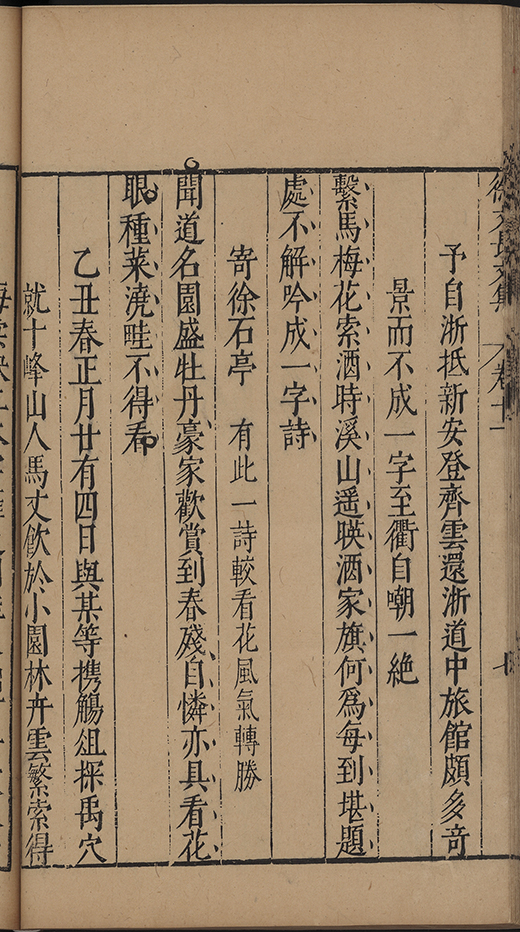 徐文長文集 卷十一 七
予自浙抵新安登齊雲還浙道中旅館頗多奇
景而不成一字至衢自嘲一絶
繫馬梅花索酒時溪山遥暎酒家旗何爲每到堪題
處不解吟成一字詩
寄徐石亭 有此一詩較看花風氣轉勝
聞道名園盛牡丹豪家歡賞到春殘自憐亦具看花
眼種菜澆畦不得看
乙丑春正月廿有四日與某等携觴俎探禹穴
就十峰山人馬丈飲於小園林卉雲繁索得